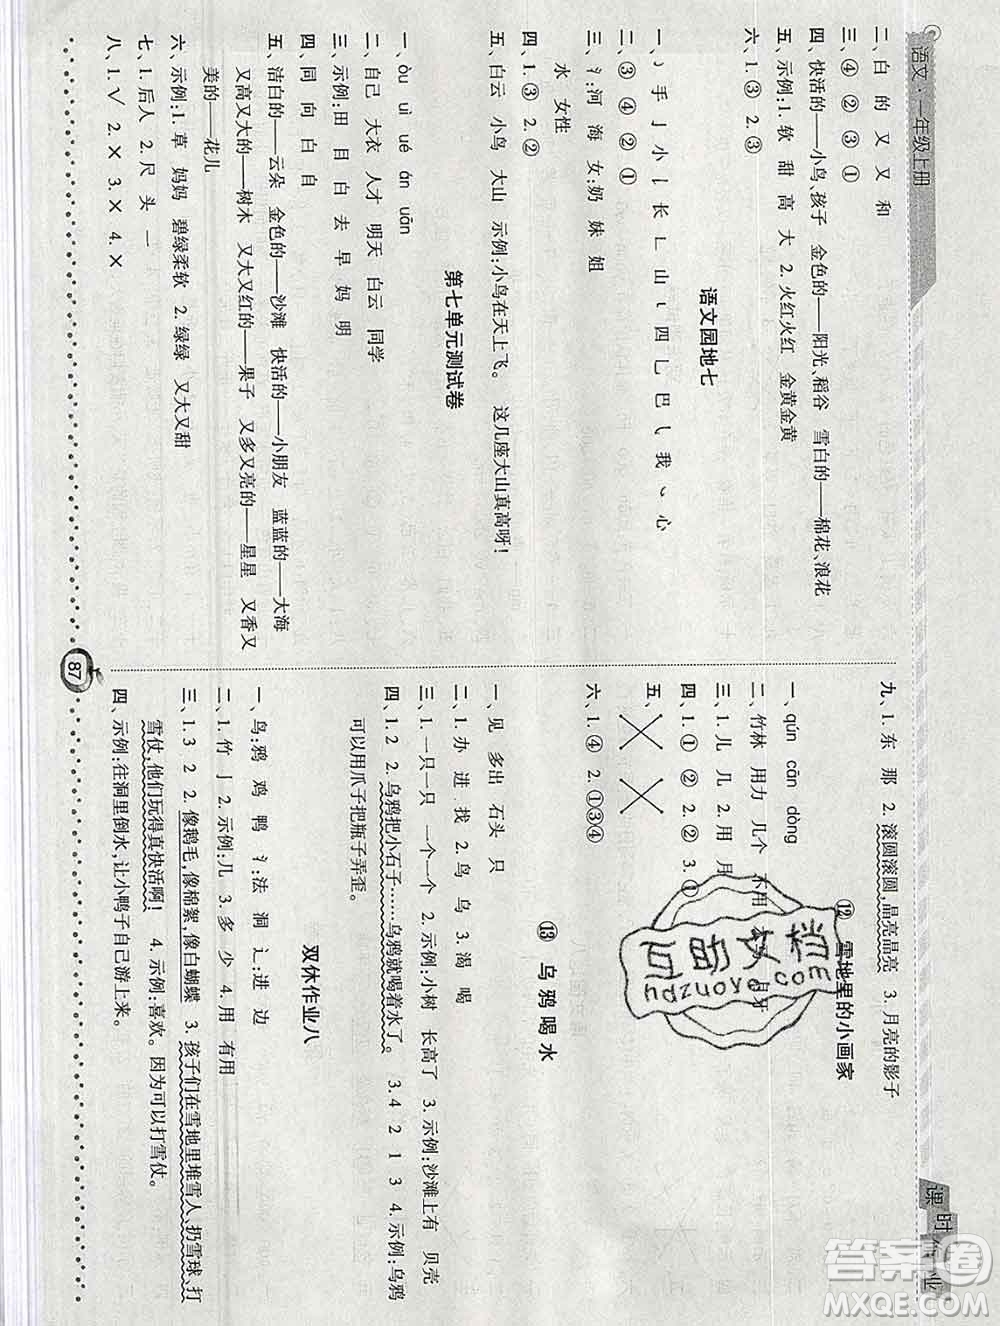 语文·一年级上册
二、白 的 又 又 和
三、④ ② ③ ①
四、快活的——小鸟、孩子 金色的——阳光、稻谷 雪白的——棉花、浪花
五、示例:1. 软 甜 高 大 2. 火红火红 金黄金黄
六、1. ③ 2. ③
语文园地七
一、㇁ 手 亅 小 长 ㇄ 山 四 乚 巴 ㇂ 我 ㇃ 心
二、③ ④ ② ①
三、氵:河 海 女:奶 妹 姐
水 女性
四、1. ③ 2. ②
五、白云 小鸟 大山 示例:小鸟在天上飞。 这几座大山真高呀!
第七单元测试卷
一、òu uì ué án uān
二、自己 大衣 人才 明天 白云 同学
三、示例:田 目 白 去 早 妈 明
四、同 向 白 自
五、洁白的——云朵 金色的——沙滩 快活的——小朋友 蓝蓝的——大海
又高又大的——树木 又大又红的——果子 又多又亮的——星星 又香又
美的——花儿
六、示例:1. 草 妈妈 碧绿柔软 2. 绿绿 又大又甜
七、1. 后人 2. 尺 头 一
八、1. √ 2. × 3. × 4. ×
九、1. 东 那 2. 滚圆滚圆,晶亮晶亮 3. 月亮的影子
⑫ 雪地里的小画家
一、qún cān dòng
二、竹林 用力 几个 不用 月牙
三、1. 儿 几 2. 用 月
四、1. ① ② 2. ② 3. ①
五、
六、1. ④ 2. ①③④
⑬ 乌鸦喝水
一、见 多出 石头 只
二、1. 办 进 找 2. 鸟 乌 3. 渴 喝
三、1. 一只一只 一个一个 2. 示例:小树 长高了 3. 示例:沙滩上有 贝壳
四、1. 2 2. 乌鸦把小石子……乌鸦就喝着水了。 3. 4 2 1 3 4. 示例:乌鸦
可以用爪子把瓶子弄歪。
双休作业八
一、鸟:鸦 鸡 鸭 氵:法 洞 辶:进 边
二、1. 竹 亅 2. 示例:几 3. 多 少 4. 用 有用
三、1. 3 2 2. 像鹅毛,像棉絮,像白蝴蝶 3. 孩子们在雪地里堆雪人,扔雪球、打
雪仗,他们玩得真快活啊! 4. 示例:喜欢。因为可以打雪仗。
四、示例:往洞里倒水,让小鸭子自己游上来。
87
互助文档
hdzuoye.com
课时作业
答案圈
MXQE.COM